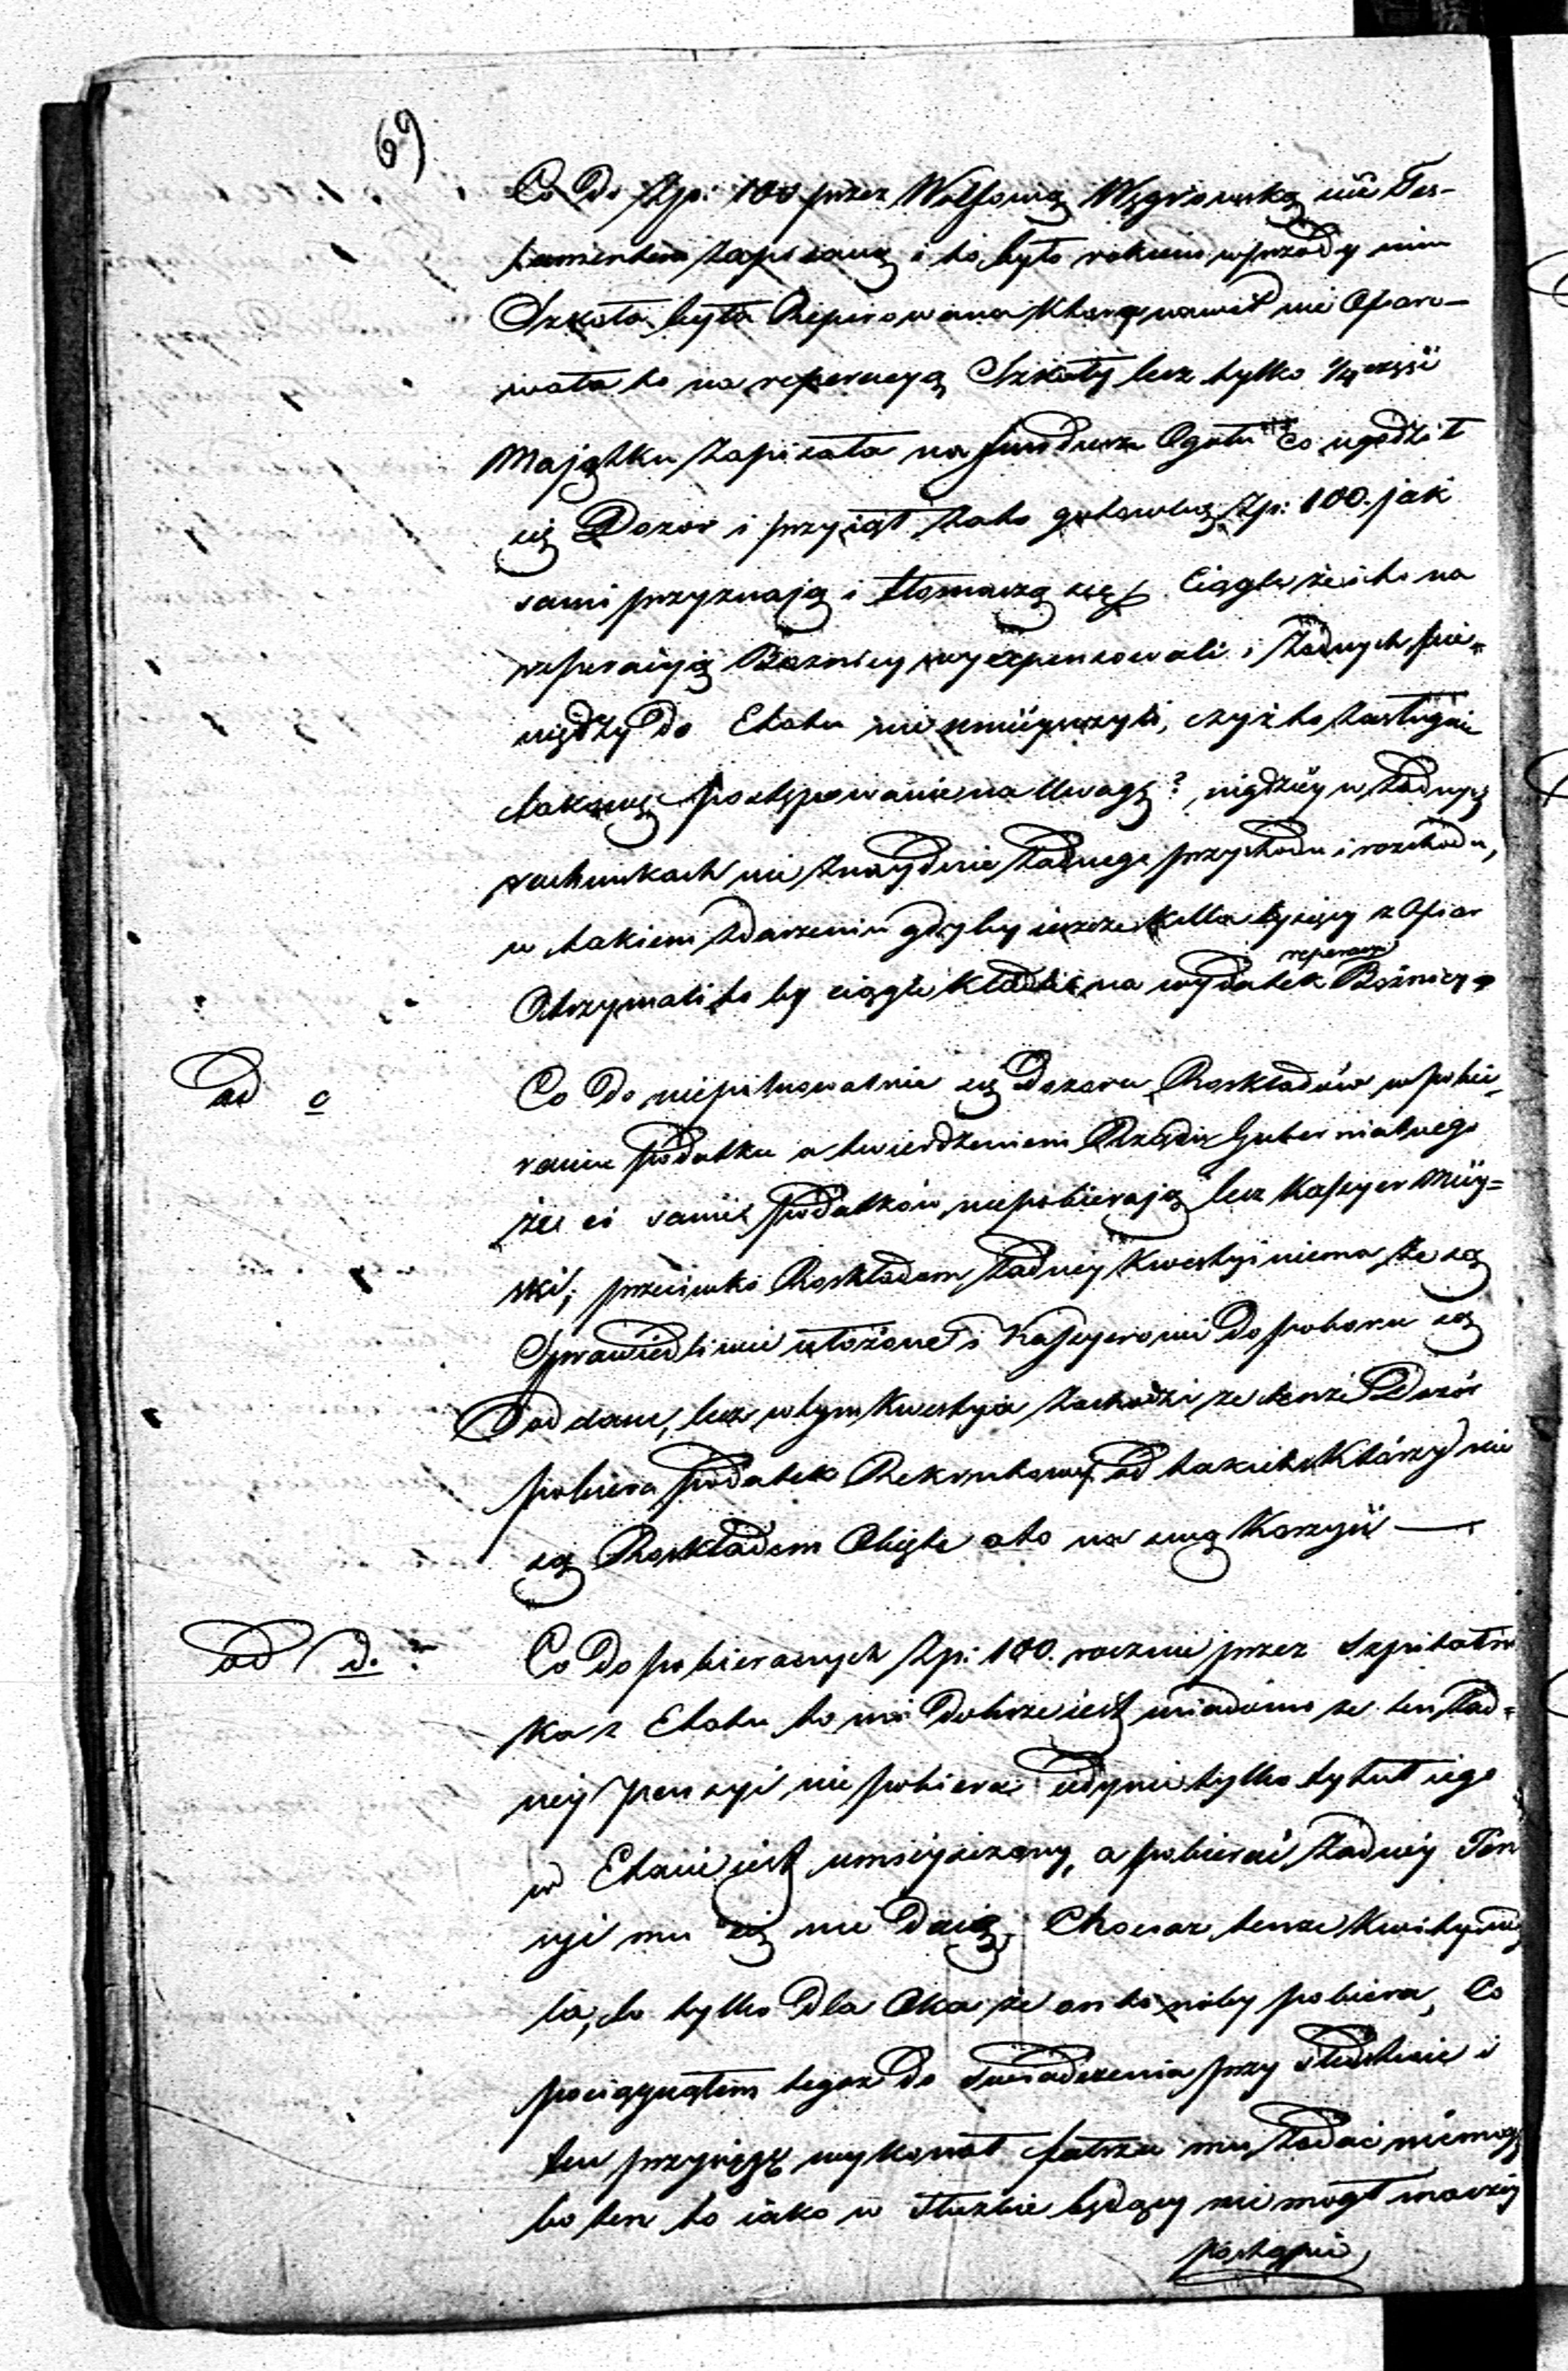 69
Co do Złp: 100 przez Wolfową Węgrowską nie Tes-
tamentem zapisaną i to było rokiem wprzody nim
Szkoła była Reperowana która nawet nie Ofiaro-
wała to na reperacyą Szkoły lecz tylko 1/4 część
Majątku zapisała na fundusz Ogółu co ugodził
się Dozor i przyiął za to gotowką Złp: 100. jak
sami przyznają i tłomaczą się Ciągle że ich na
reperacyią Bożnicy wyexpensowali i żadnych pie-
niędzy do Etatu nie umieysczyli, czyż to zasługuie
takowe postępowanie na Uwagę? nigdzie w żadnych
rachunkach nie znaydzie żadnego przychodu i rozchodu,
w takiem zdarzeniu gdyby ieszcze kilka tysięcy z Ofiar
Otrzymali to by ciągle kładli na wydatek reperacyi Bożnicy
ad c
Co do niepilnowalnie się Dozoru Rozkładów w pobie-
raniu podatku a twierdzeniem Rządu Gubernialnego
że ci sami podatków niepobierają lecz Kassyer Miey-
ski, przeciwko Rozkładom żadney kwestyi niema że są
Sprawiedliwie ułożone i Kassyerowi do poboru są
Oddane, lecz w tym kwestyia zachodzi że tenże Dozór
pobiera podatek Rekrutowy od takich którzy nie
są Rozkładem Obięte a to na swą Korzyść —
ad d.
Co do pobieranych Złp: 100. rocznie przez Szpitalni
ka z Etatu to mi dobrze iest wiadomo że ten żad-
ney pensyi nie pobiera iedynie tylko tytuł iego
w Etacie iest umieysczony, a pobierać żadney Pen
syi mu się nie daią, Chociaż tenże kwituie
to, to tylko dla Oka że on to niby pobiera, Co
pociągnąłem tegoż do świadczenia przy śledztwie i
ten przysięgę wykonał fałszu mu zadać niemogę
bo ten to iako w służbie będący nie mogł inaczéy
postąpić